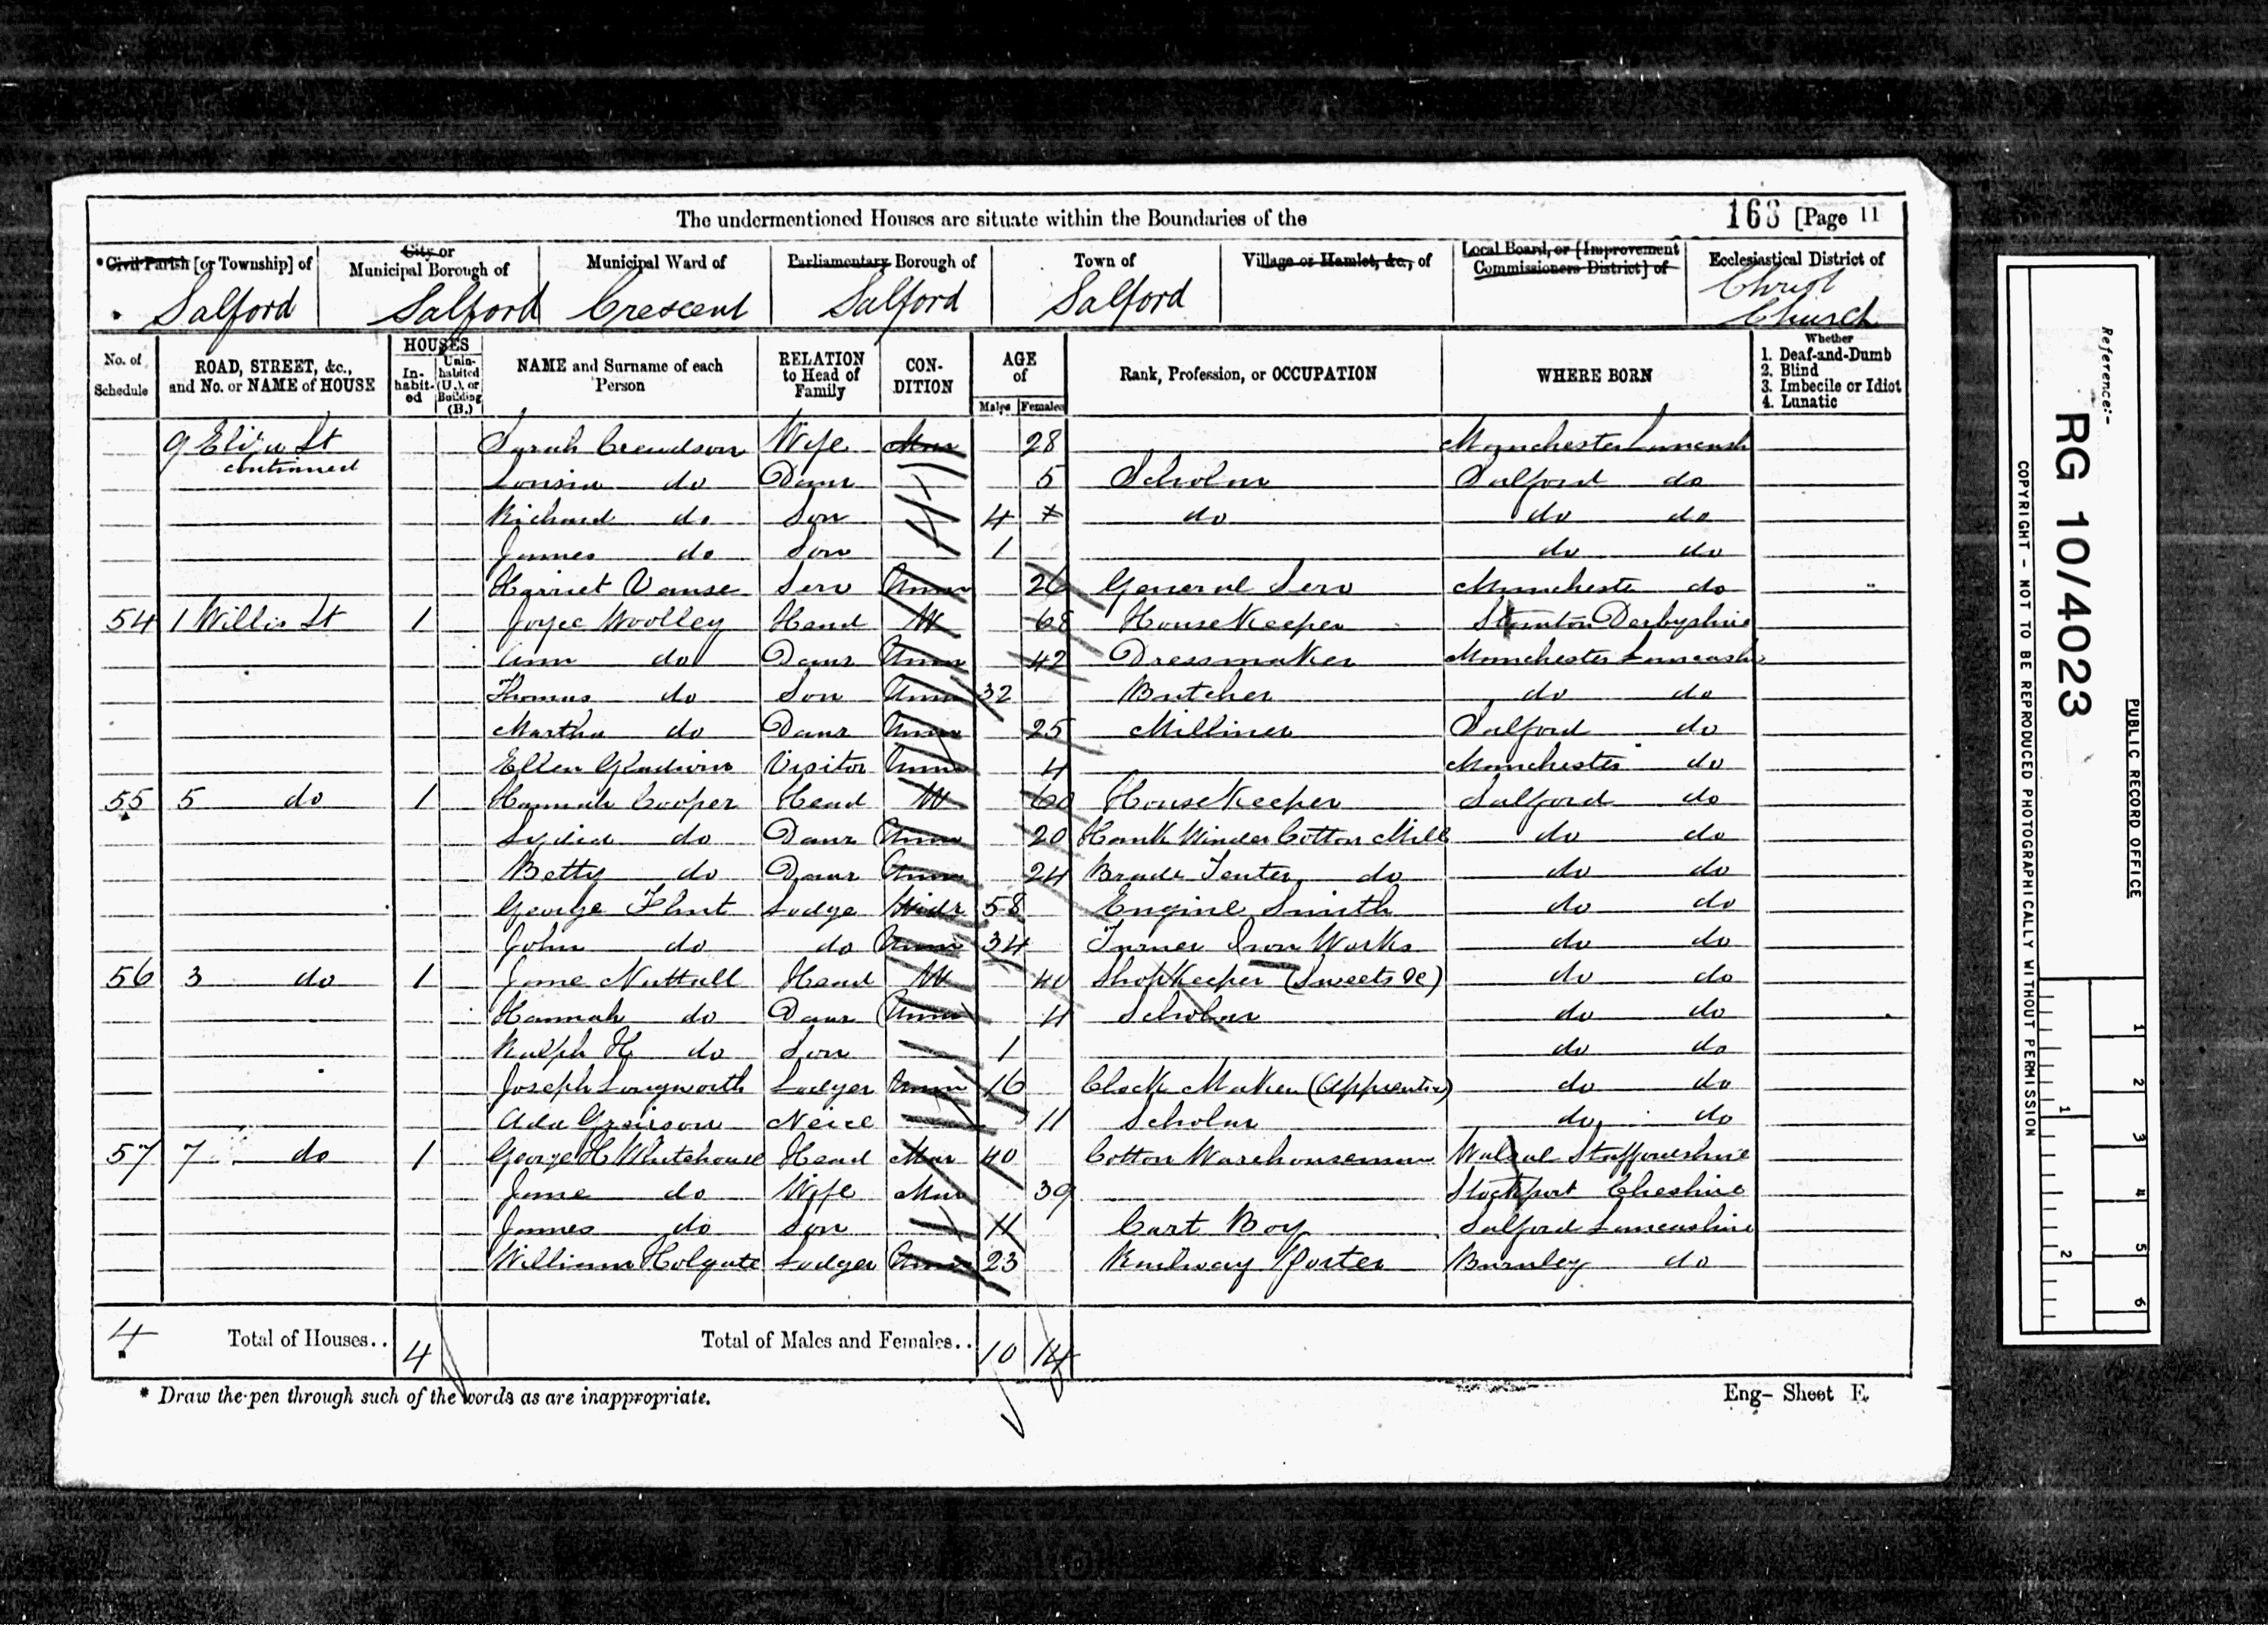 The undermentioned Houses are situate within the Boundaries of the
168 [Page 11
*Civil Parish [or Township] of
Salford
City or Municipal Borough of
Salford
Municipal Ward of
Crescent
Parliamentary Borough of
Salford
Town of
Salford
Village or Hamlet, &c., of
Local Board, or [Improvement Commissioners District] of
Ecclesiastical District of
Christ Church
No. of Schedule
ROAD, STREET, &c., and No. or NAME of HOUSE
HOUSES
Inhabited
Uninhabited (U.), or Building (B.)
NAME and Surname of each Person
RELATION to Head of Family
CONDITION
AGE of
Males Females
Rank, Profession, or OCCUPATION
WHERE BORN
Whether
1. Deaf-and-Dumb
2. Blind
3. Imbecile or Idiot
4. Lunatic
9 Eliza St continued Sarah Wife Mar 28 Manchester Lancash
Louisa do Daur 5 Scholar Salford do
Richard do Son 4 do do do
James do Son 1 do do
Harriet Vause Serv Unm 26 General Serv Manchester do
54 1 Willis St 1 Joyce Woolley Head W 68 HouseKeeper Derbyshire
Ann do Daur Unm 42 Dressmaker Manchester Lancash
Thomas do Son Unm 32 Butcher do do
Martha do Daur Unm 25 Milliner Salford do
Ellen Gladwin Visitor Unm 4 Manchester do
55 5 do 1 Hannah Cooper Head W 60 HouseKeeper Salford do
Lydia do Daur Unm 20 Hank Winder Cotton Mill do do
Betty do Daur Unm 24 Tenter do do do
George Flint Lodge Widr 58 Engine Smith do do
John do do Unm 34 Turner Iron Works do do
56 3 do 1 Jane Nuttall Head W 40 ShopKeeper (Sweets &c) do do
Hannah do Daur Unm 4 Scholar do do
Ralph H do Son 1 do do
Joseph Longworth Lodger Unm 16 Clock Maker (Apprentice) do do
Ada Greirson Neice 11 Scholar do do
57 7 do 1 George H Whitehouse Head Mar 40 Cotton Warehouseman Walsal Staffordshire
Jane do Wife Mar 39 Stockport Cheshire
James do Son 11 Cart Boy Salford Lancashire
William Holgate Lodger Unm 23 Railway Porter Burnley do
4 Total of Houses.. 4 Total of Males and Females.. 10 14
* Draw the pen through such of the words as are inappropriate.
Eng- Sheet E.
Reference:-
RG 10/4023
PUBLIC RECORD OFFICE
COPYRIGHT - NOT TO BE REPRODUCED PHOTOGRAPHICALLY WITHOUT PERMISSION
1 2
1 2 3 4 5 6